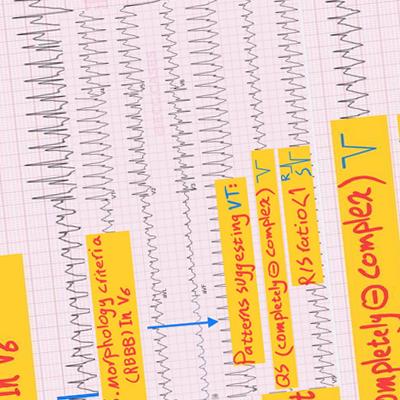 In V6
.morphology criteria
(RBBB) In V6
Patterns suggesting VT:
QS (completely ⊖ complex)
R/S ratio <1 R/S
ompletely ⊖ complex)